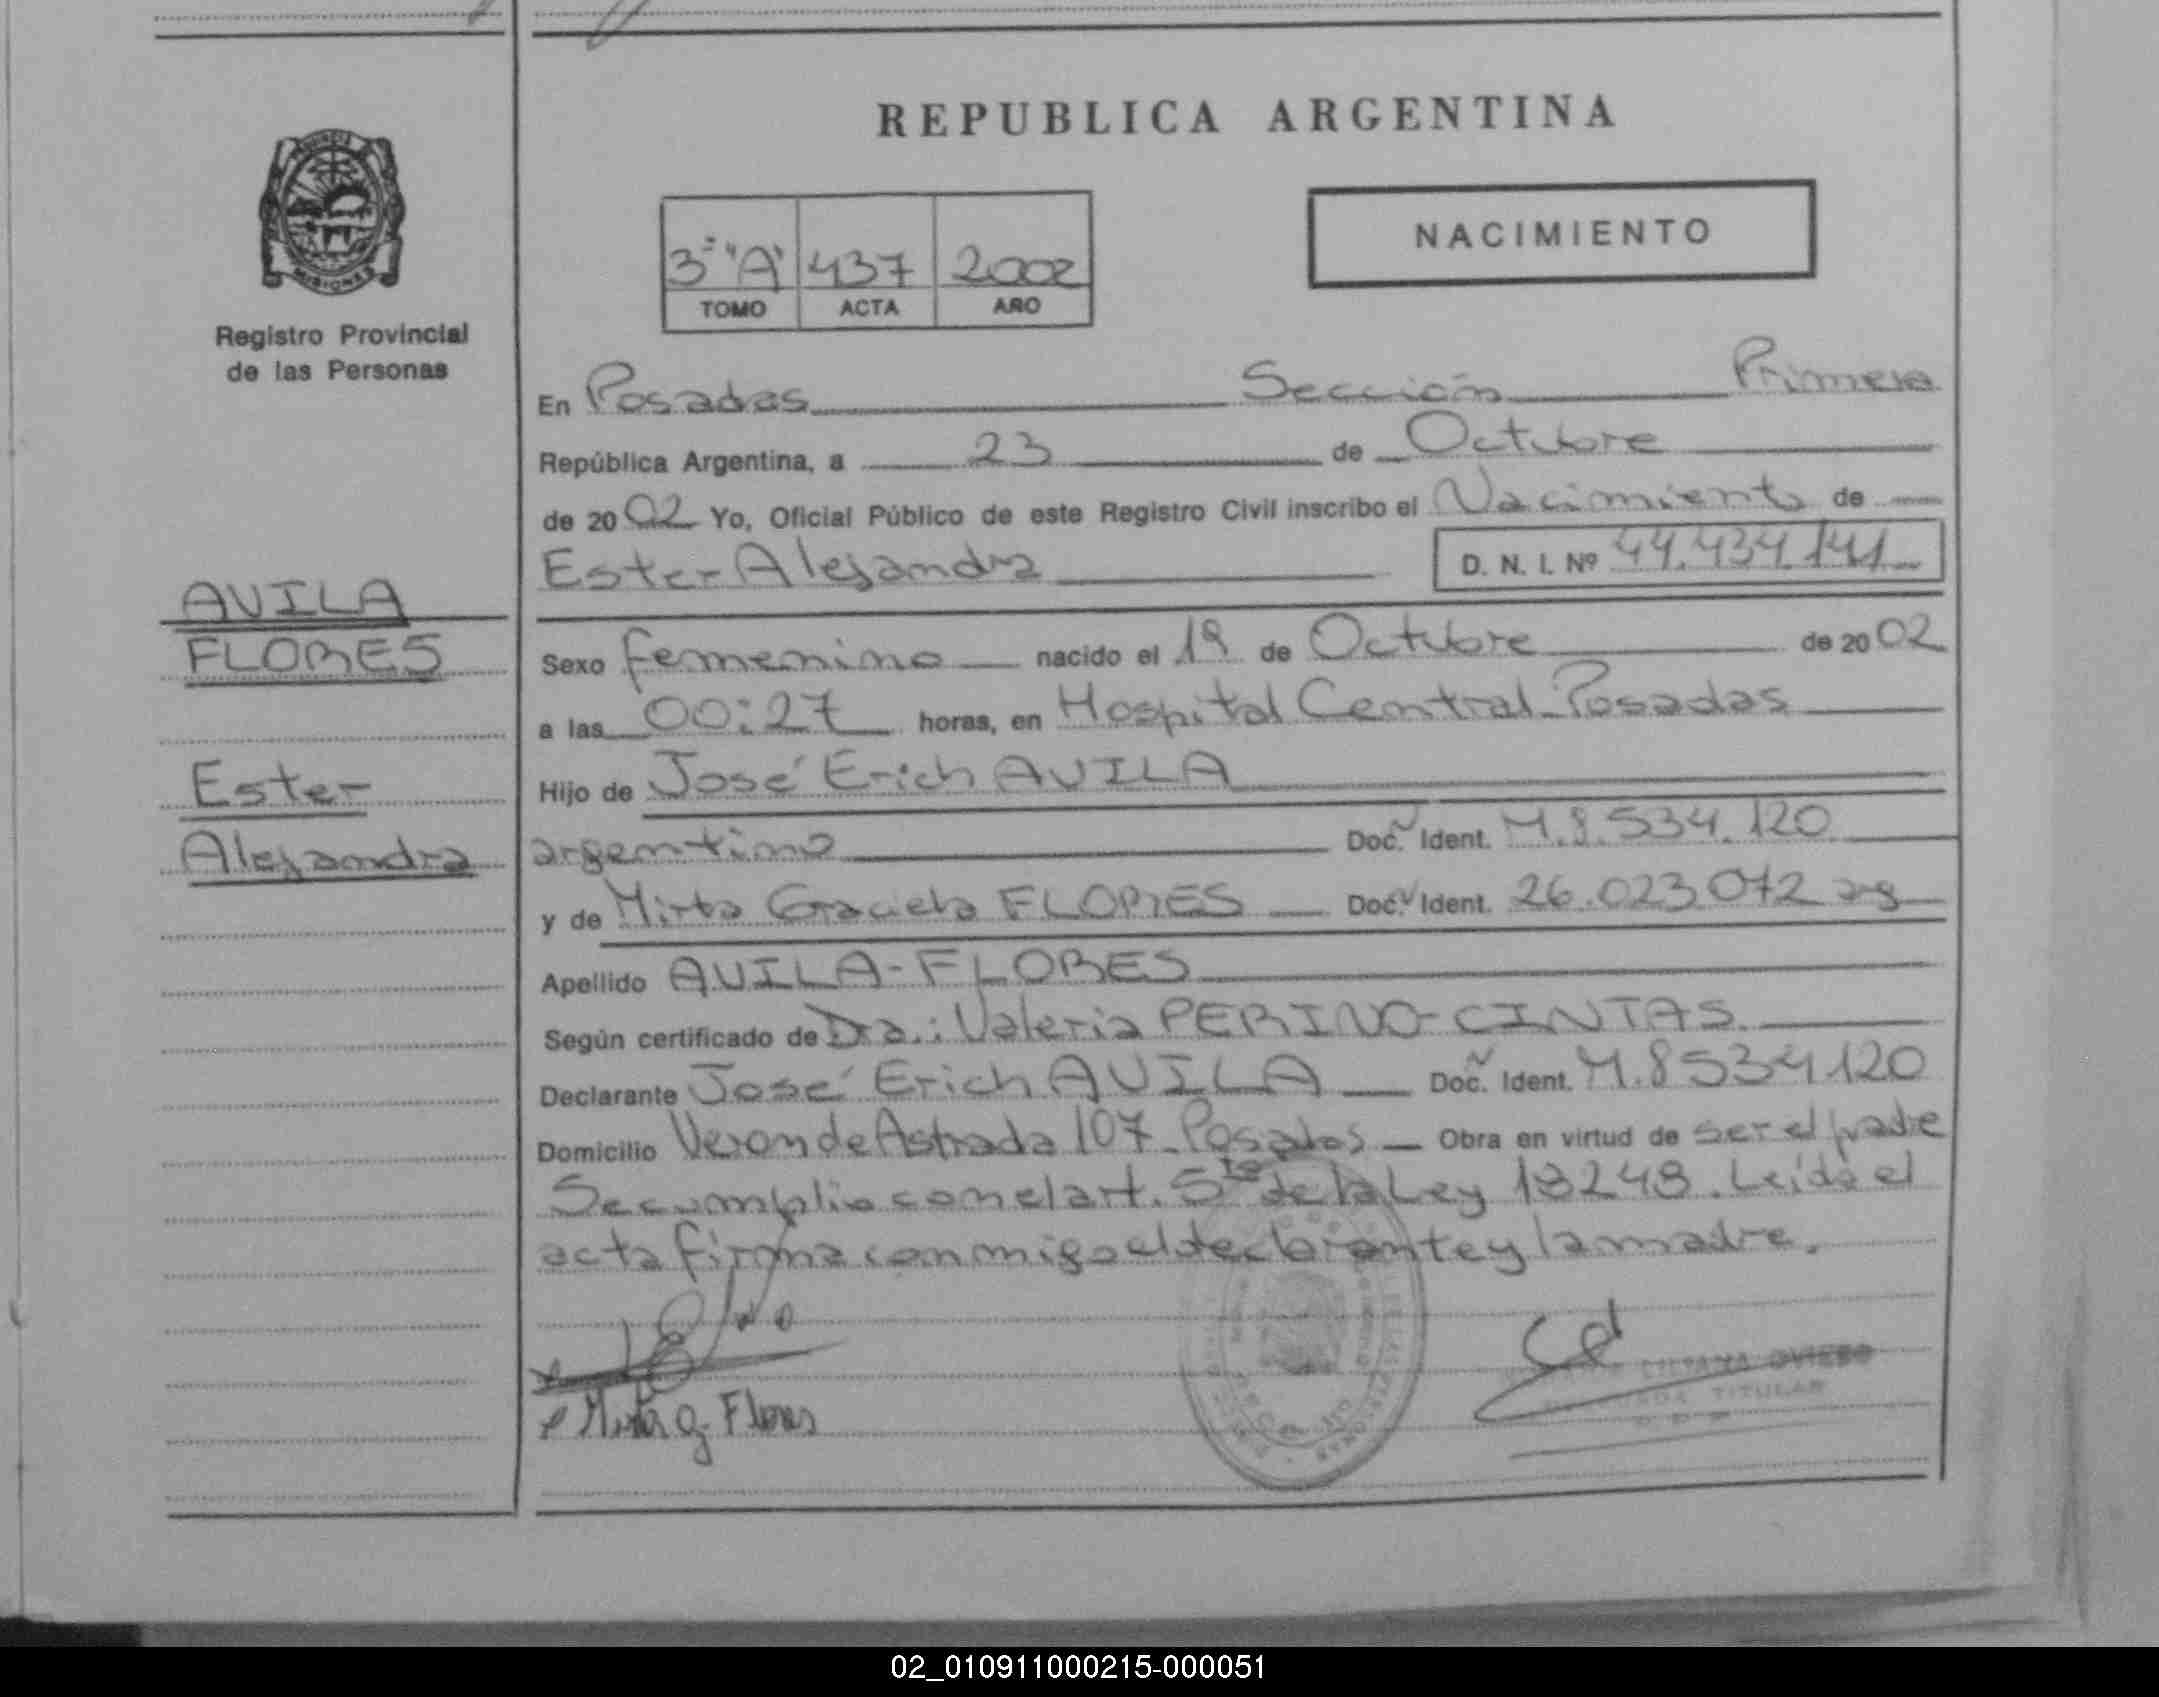 REPUBLICA ARGENTINA
MISIONES
Registro Provincial
de las Personas
3º "A" 437 2002
TOMO ACTA AÑO
NACIMIENTO
En Posadas Sección Primera
República Argentina, a 23 de Octubre
de 2002 Yo, Oficial Público de este Registro Civil inscribo el Nacimiento de
Ester Alejandra D. N. I. Nº 44.434.141
AVILA
FLORES
Ester
Alejandra
Sexo femenino nacido el 19 de Octubre de 2002
a las 00:27 horas, en Hospital Central-Posadas
Hijo de José Erich AVILA
argentino Doc. Ident. M.8.534.120
y de Mirta Graciela FLORES Doc. Ident. 26.023.072 arg
Apellido AVILA-FLORES
Según certificado de Dra.: Valeria PERINO-CINTAS.
Declarante José Erich AVILA Doc. Ident. M.8534120
Domicilio Veron de Astrada 107-Posadas Obra en virtud de ser el padre
Se cumplio con el art. 5to de la Ley 18248. Leída el
acta firma conmigo el declarante y la madre.
Mirta g. Flores
LILIANA OVIEDO
TITULAR
02_010911000215-000051